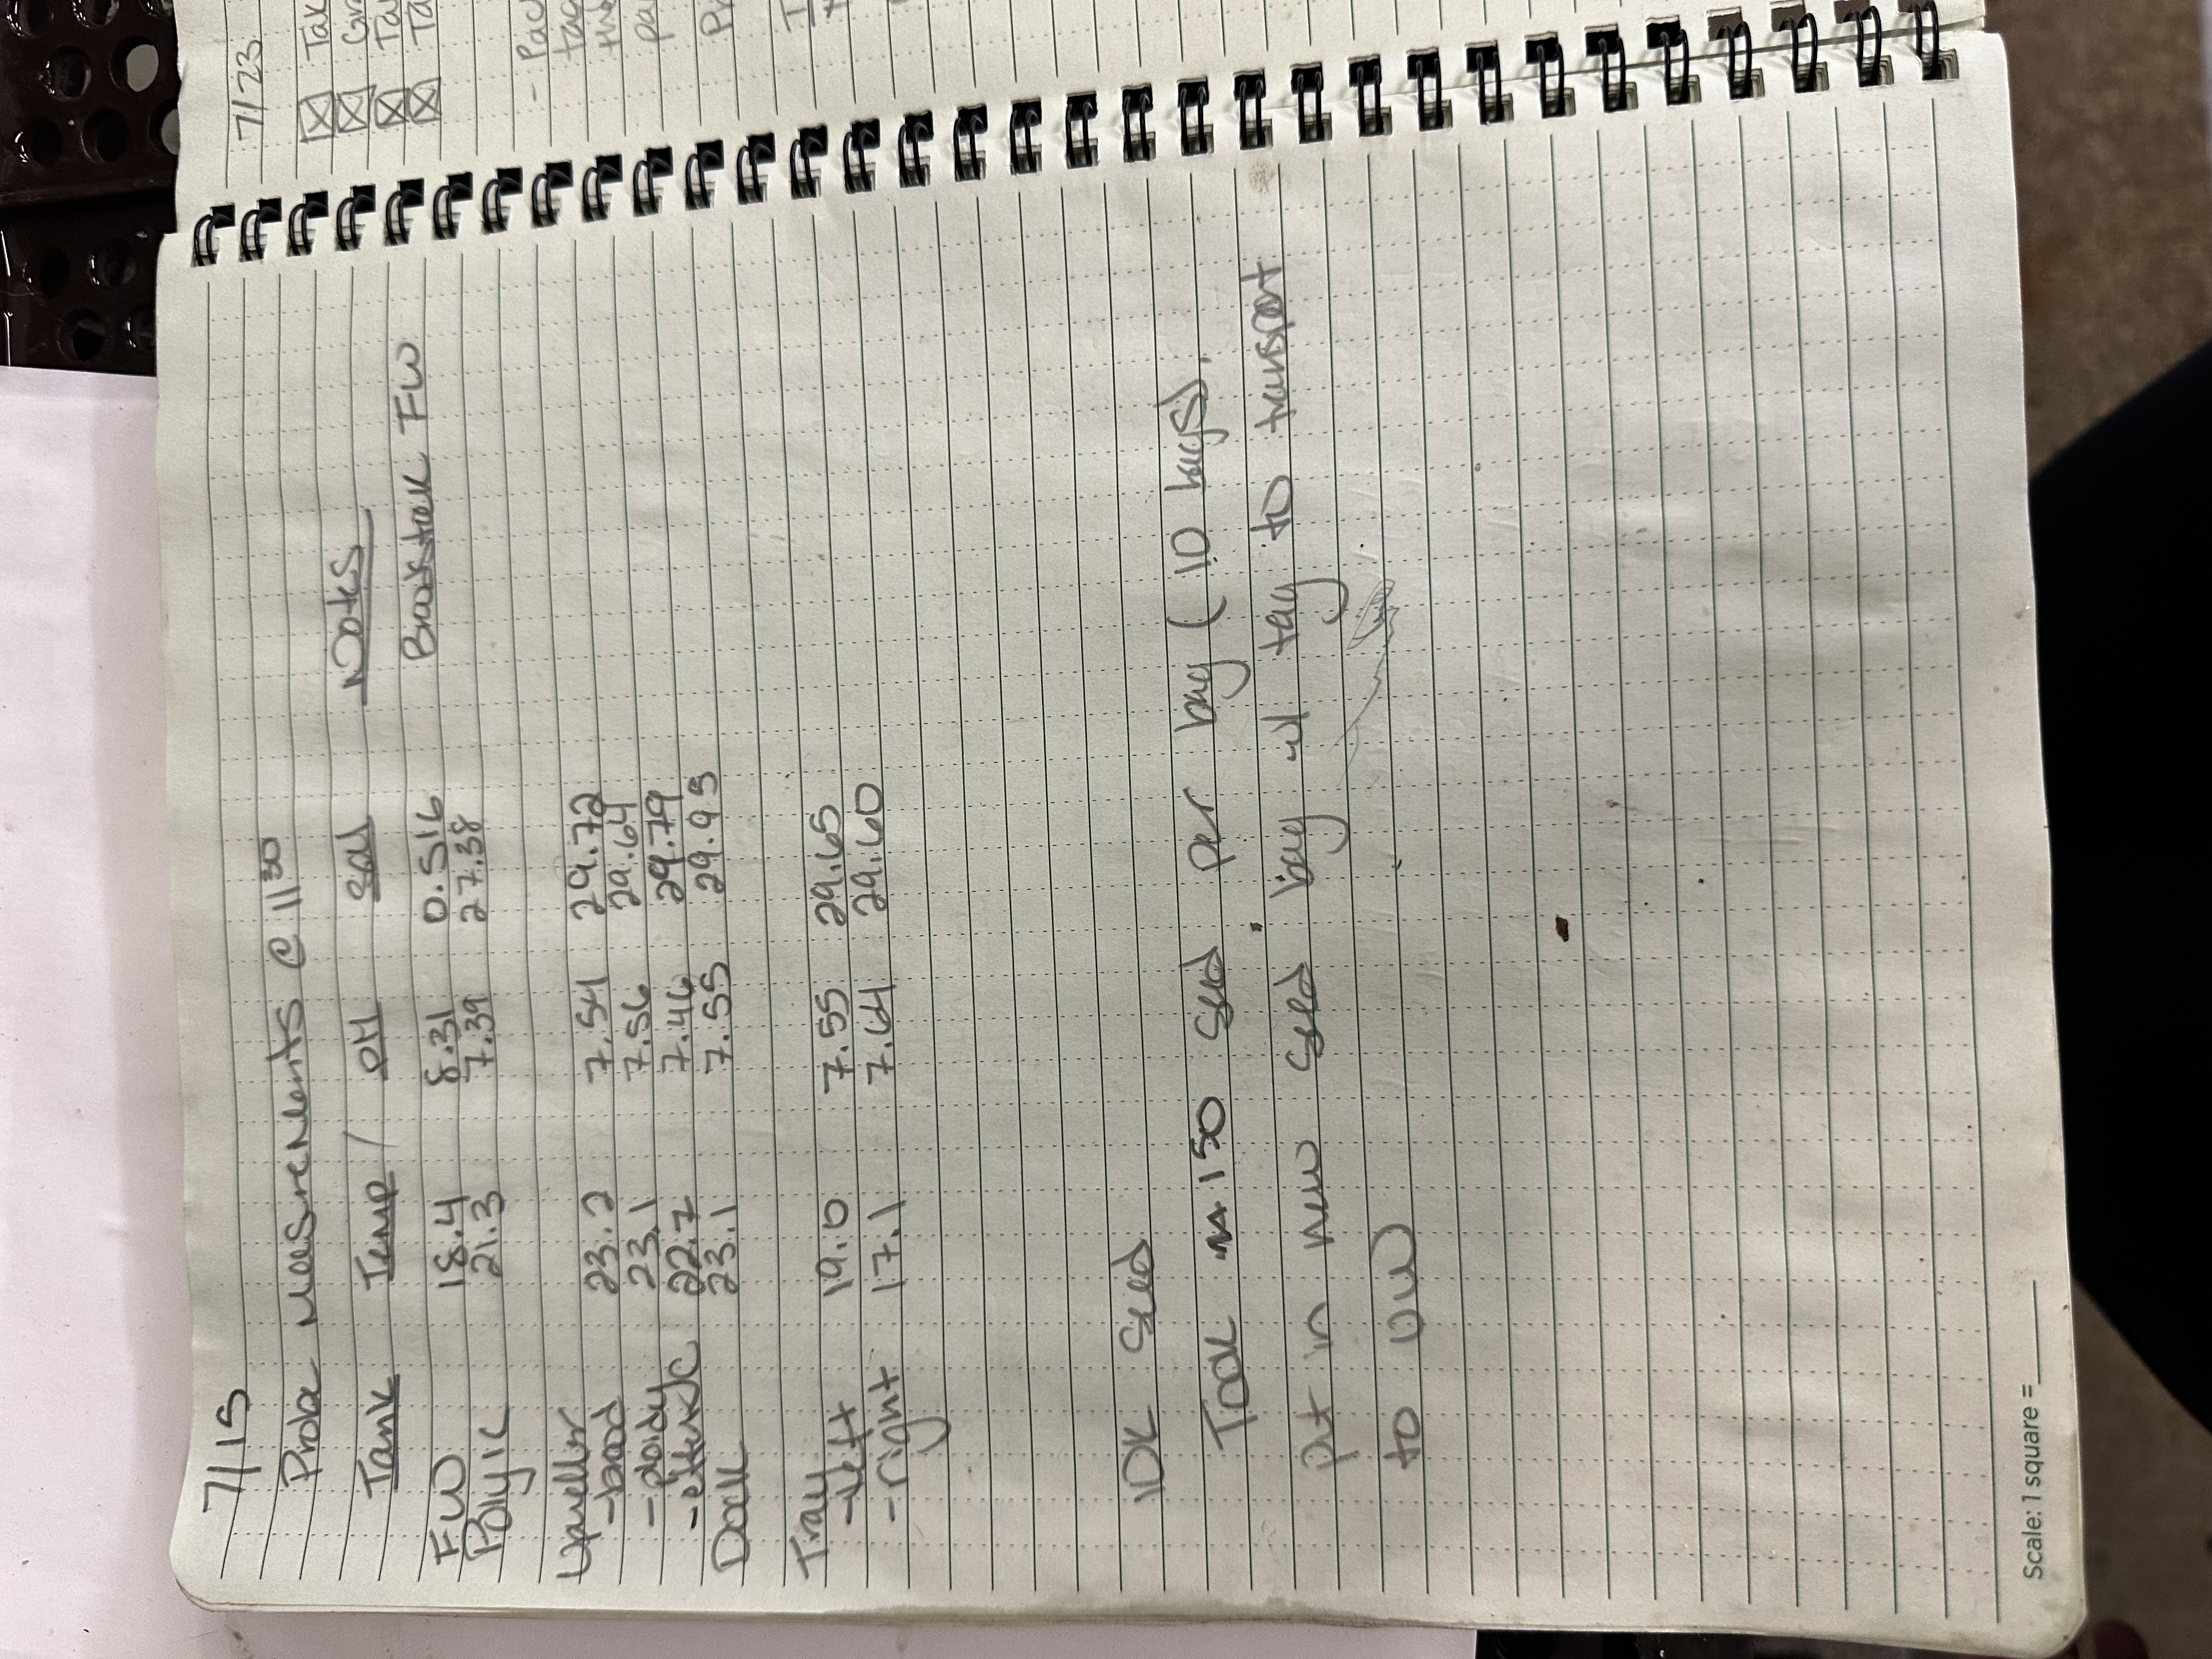 7/15
Probe Measurements @ 11³⁰
Tank Temp / pH Sal Notes
FW 18.4 8.31 0.516 Broodstock FW
Polyic 21.3 7.39 27.38
Upweller
-brood 23.2 7.54 29.72
-ploidy 23.1 7.56 29.64
-effluvC 22.7 7.46 29.79
Dock 23.1 7.55 29.95
Tray
-left 19.0 7.55 29.65
-right 17.1 7.64 29.60
10K Seed
Took 150 seed per bag (10 bags).
put in new seed bag w/ tag to transport
to UW
Scale: 1 square =
7/23
☒ Tak
☒ Gr
☒ Ta
☒ Ta
- Pac
tag
the
pa
Pr